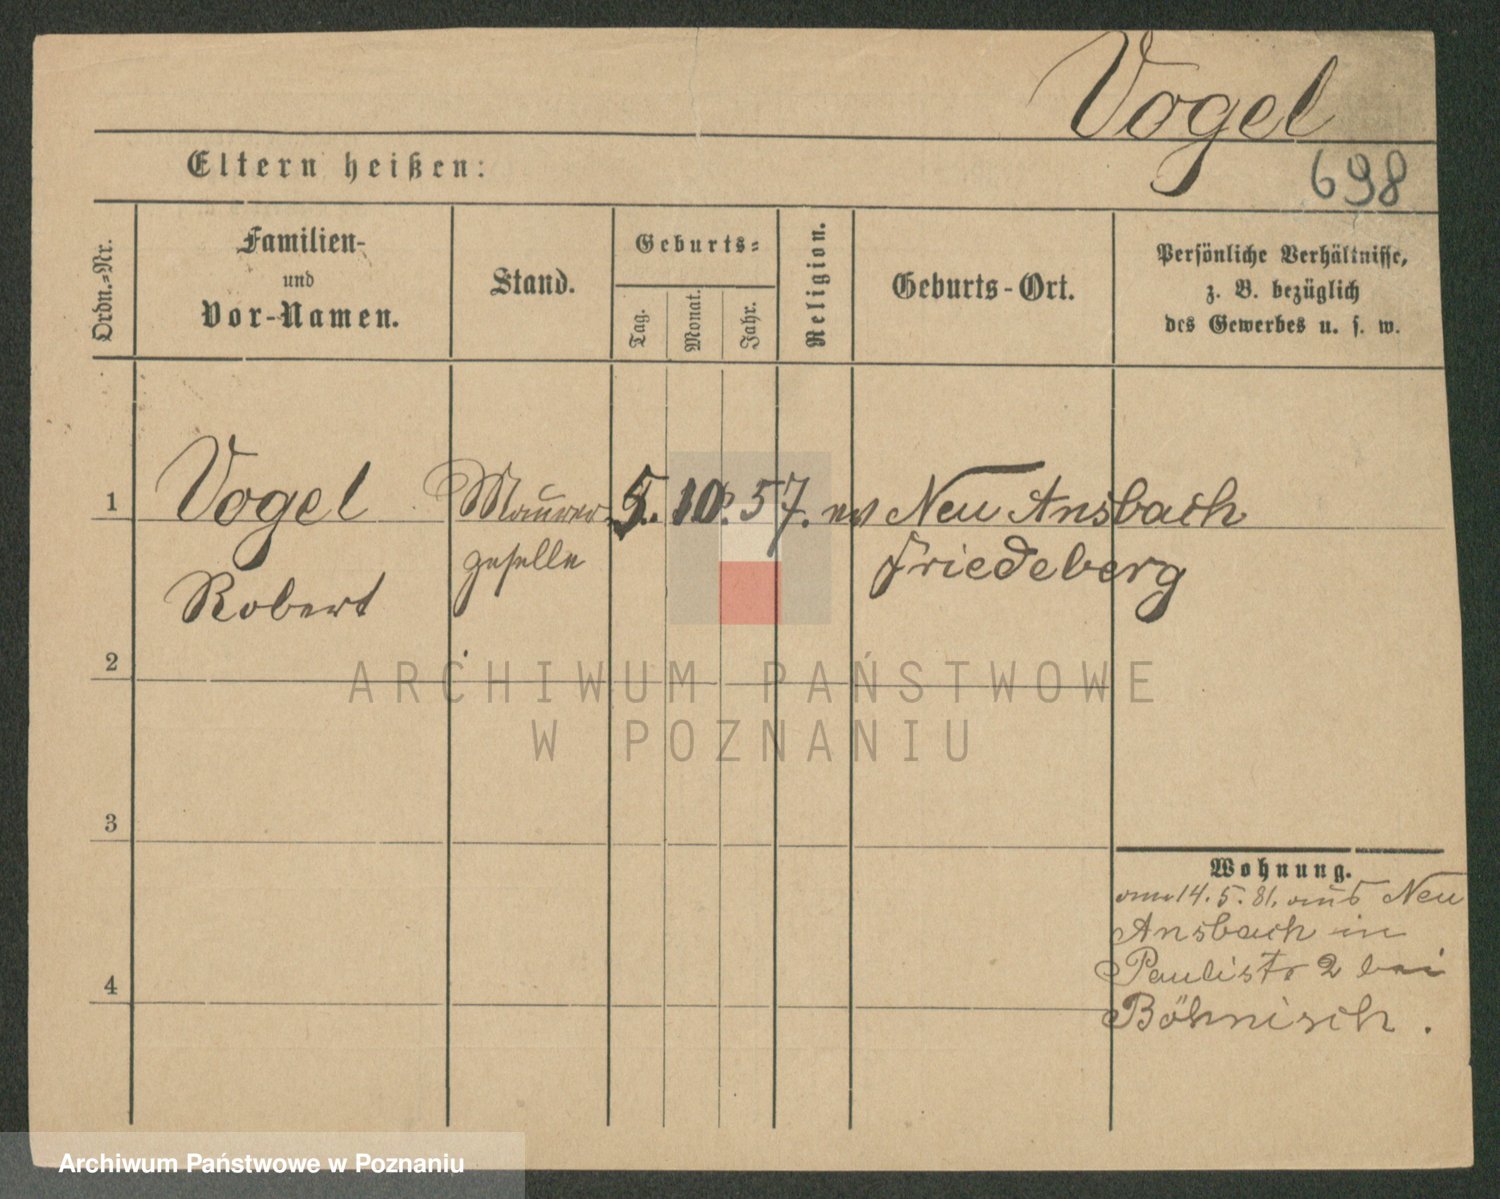 Vogel
698
Eltern heißen:
Ordn.-Nr.
Familien-
und
Vor-Namen.
Stand.
Geburts-
Tag.
Monat.
Jahr.
Religion.
Geburts-Ort.
Persönliche Verhältnisse,
z. B. bezüglich
des Gewerbes u. s. w.
1
Vogel
Maurer-
5. 10. 57. ev Neu Ansbach
geselle
Friedeberg
Robert
2
ARCHIWUM PAŃSTWOWE
W POZNANIU
3
Wohnung.
am 14. 5. 81. aus Neu
Ansbach in
Paulistr 2 bei
4
Böhnisch.
Archiwum Państwowe w Poznaniu